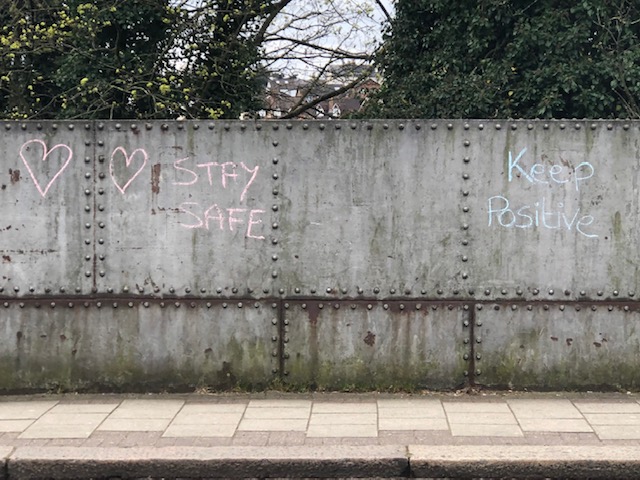 STAY
SAFE
Keep
Positive